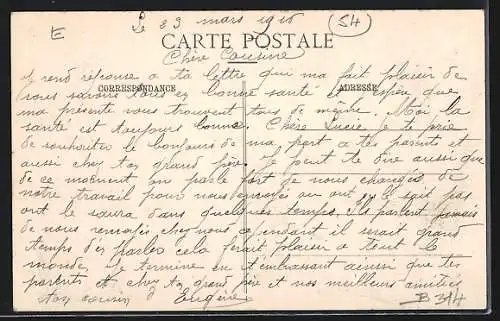 E
Le 23 mars 1916
54
CARTE POSTALE
Chère Cousine
CORRESPONDANCE
ADRESSE
Je rend réponse a ta lettre qui ma fait plaisir de
vous savoir tous en bonne santé et espère que
ma présente vous trouvent tous de même. Moi la
santé est toujours bonne. Chère Lucie je te prie
de souhaiter le bonjours de ma part a tes parents et
aussi chez ton grand père. Je peut te dire aussi que
de ce moment on parle fort de nous changés de
notre travail pour nous envoyés ou on ne le sait pas
ont le saura dans quelques temps. Ils parlent jamais
de nous renvoyés chez nous cependant il serait grand
temps d'en parler cela ferait plaisir a tout le
monde. Je termine en t'embrassant ainsi que tes
parents et chez ton grand père et nos meilleurs amitiés
ton cousin Eugène
B 314